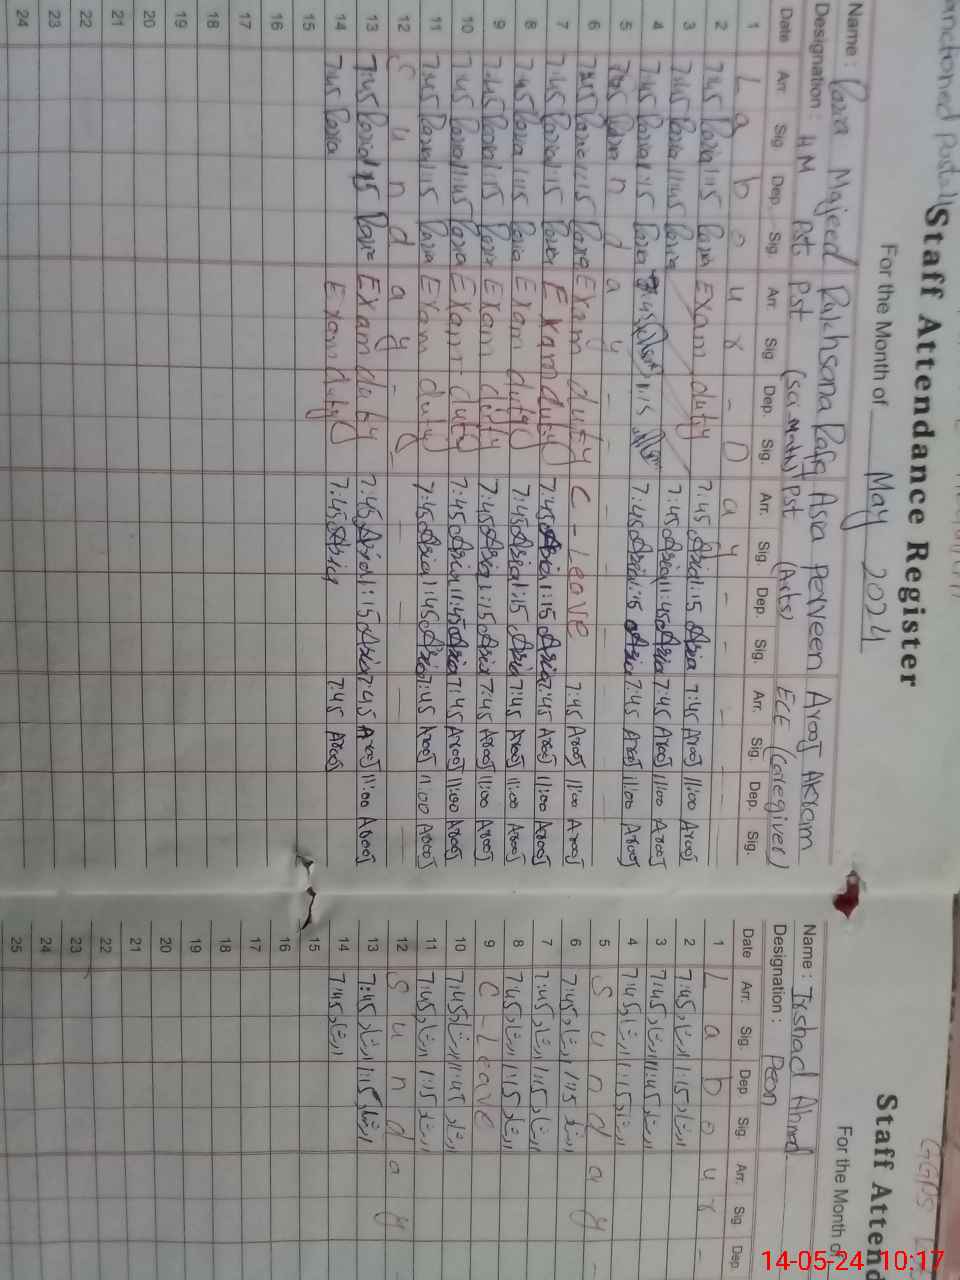 Sanctioned Posts
Staff Attendance Register
For the Month of May 2024
Name : Razia Majeed Rukhsana Rafiq Asia Perveen Arooj Akram
Designation : HM Pst Pst (Sci Math) Pst (Arts) ECE (Caregiver)
Date Arr. Sig Dep. Sig Arr. Sig Dep. Sig. Arr. Sig. Dep. Sig. Arr. Sig. Dep. Sig.
1 L a b o u r - D a y - - - -
2 7:45 Razia 1:15 Razia Exam duty 7:45 Asia 1:15 Asia 7:45 Arooj 11:00 Arooj
3 7:45 Razia 11:45 Razia 7:45 Asia 11:45 Asia 7:45 Arooj 11:00 Arooj
4 7:45 Razia 1:15 Razia 7:45 1:15 7:45 Asia 1:15 Asia 7:45 Arooj 11:00 Arooj
5 S u n d a y - - - -
6 7:45 Razia 1:15 Razia Exam duty C - Leave 7:45 Arooj 11:00 Arooj
7 7:45 Razia 1:15 Razia Exam duty 7:45 Asia 1:15 Asia 7:45 Arooj 11:00 Arooj
8 7:45 Razia 1:15 Razia Exam duty 7:45 Asia 1:15 Asia 7:45 Arooj 11:00 Arooj
9 7:45 Razia 1:15 Razia Exam duty 7:45 Asia 1:15 Asia 7:45 Arooj 11:00 Arooj
10 7:45 Razia 11:45 Razia Exam duty 7:45 Asia 11:45 Asia 7:45 Arooj 11:00 Arooj
11 7:45 Razia 1:15 Razia Exam duty 7:45 Asia 1:45 Asia 7:45 Arooj 11:00 Arooj
12 S u n d a y - - - -
13 7:45 Razia 1:15 Razia Exam duty 7:45 Asia 1:15 Asia 7:45 Arooj 11:00 Arooj
14 7:45 Razia Exam duty 7:45 Asia 7:45 Arooj
15
16
17
18
19
20
21
22
23
24
GGPS
Staff Attend
For the Month of
Name : Irshad Ahmed
Designation : Peon
Date Arr. Sig. Dep. Sig. Arr. Sig Dep
1 L a b o u r -
2 7:45 ارشاد 1:15 ارشاد
3 7:45 ارشاد 11:45 ارشاد
4 7:45 ارشاد 1:15 ارشاد
5 S u n d a y -
6 7:45 ارشاد 1:15 ارشاد
7 7:45 ارشاد 1:15 ارشاد
8 7:45 ارشاد 1:15 ارشاد
9 C - Leave
10 7:45 ارشاد 11:45 ارشاد
11 7:45 ارشاد 1:15 ارشاد
12 S u n d a y
13 7:45 ارشاد 1:15 ارشاد
14 7:45 ارشاد
15
16
17
18
19
20
21
22
23
24
25
14-05-24 10:17